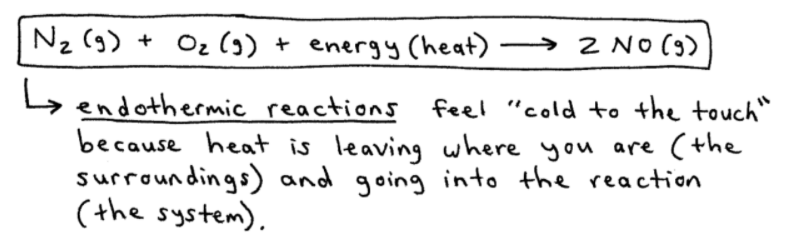 N₂ (g) + O₂ (g) + energy (heat) ⟶ 2 NO (g)
↳ endothermic reactions feel "cold to the touch"
because heat is leaving where you are (the
surroundings) and going into the reaction
(the system).